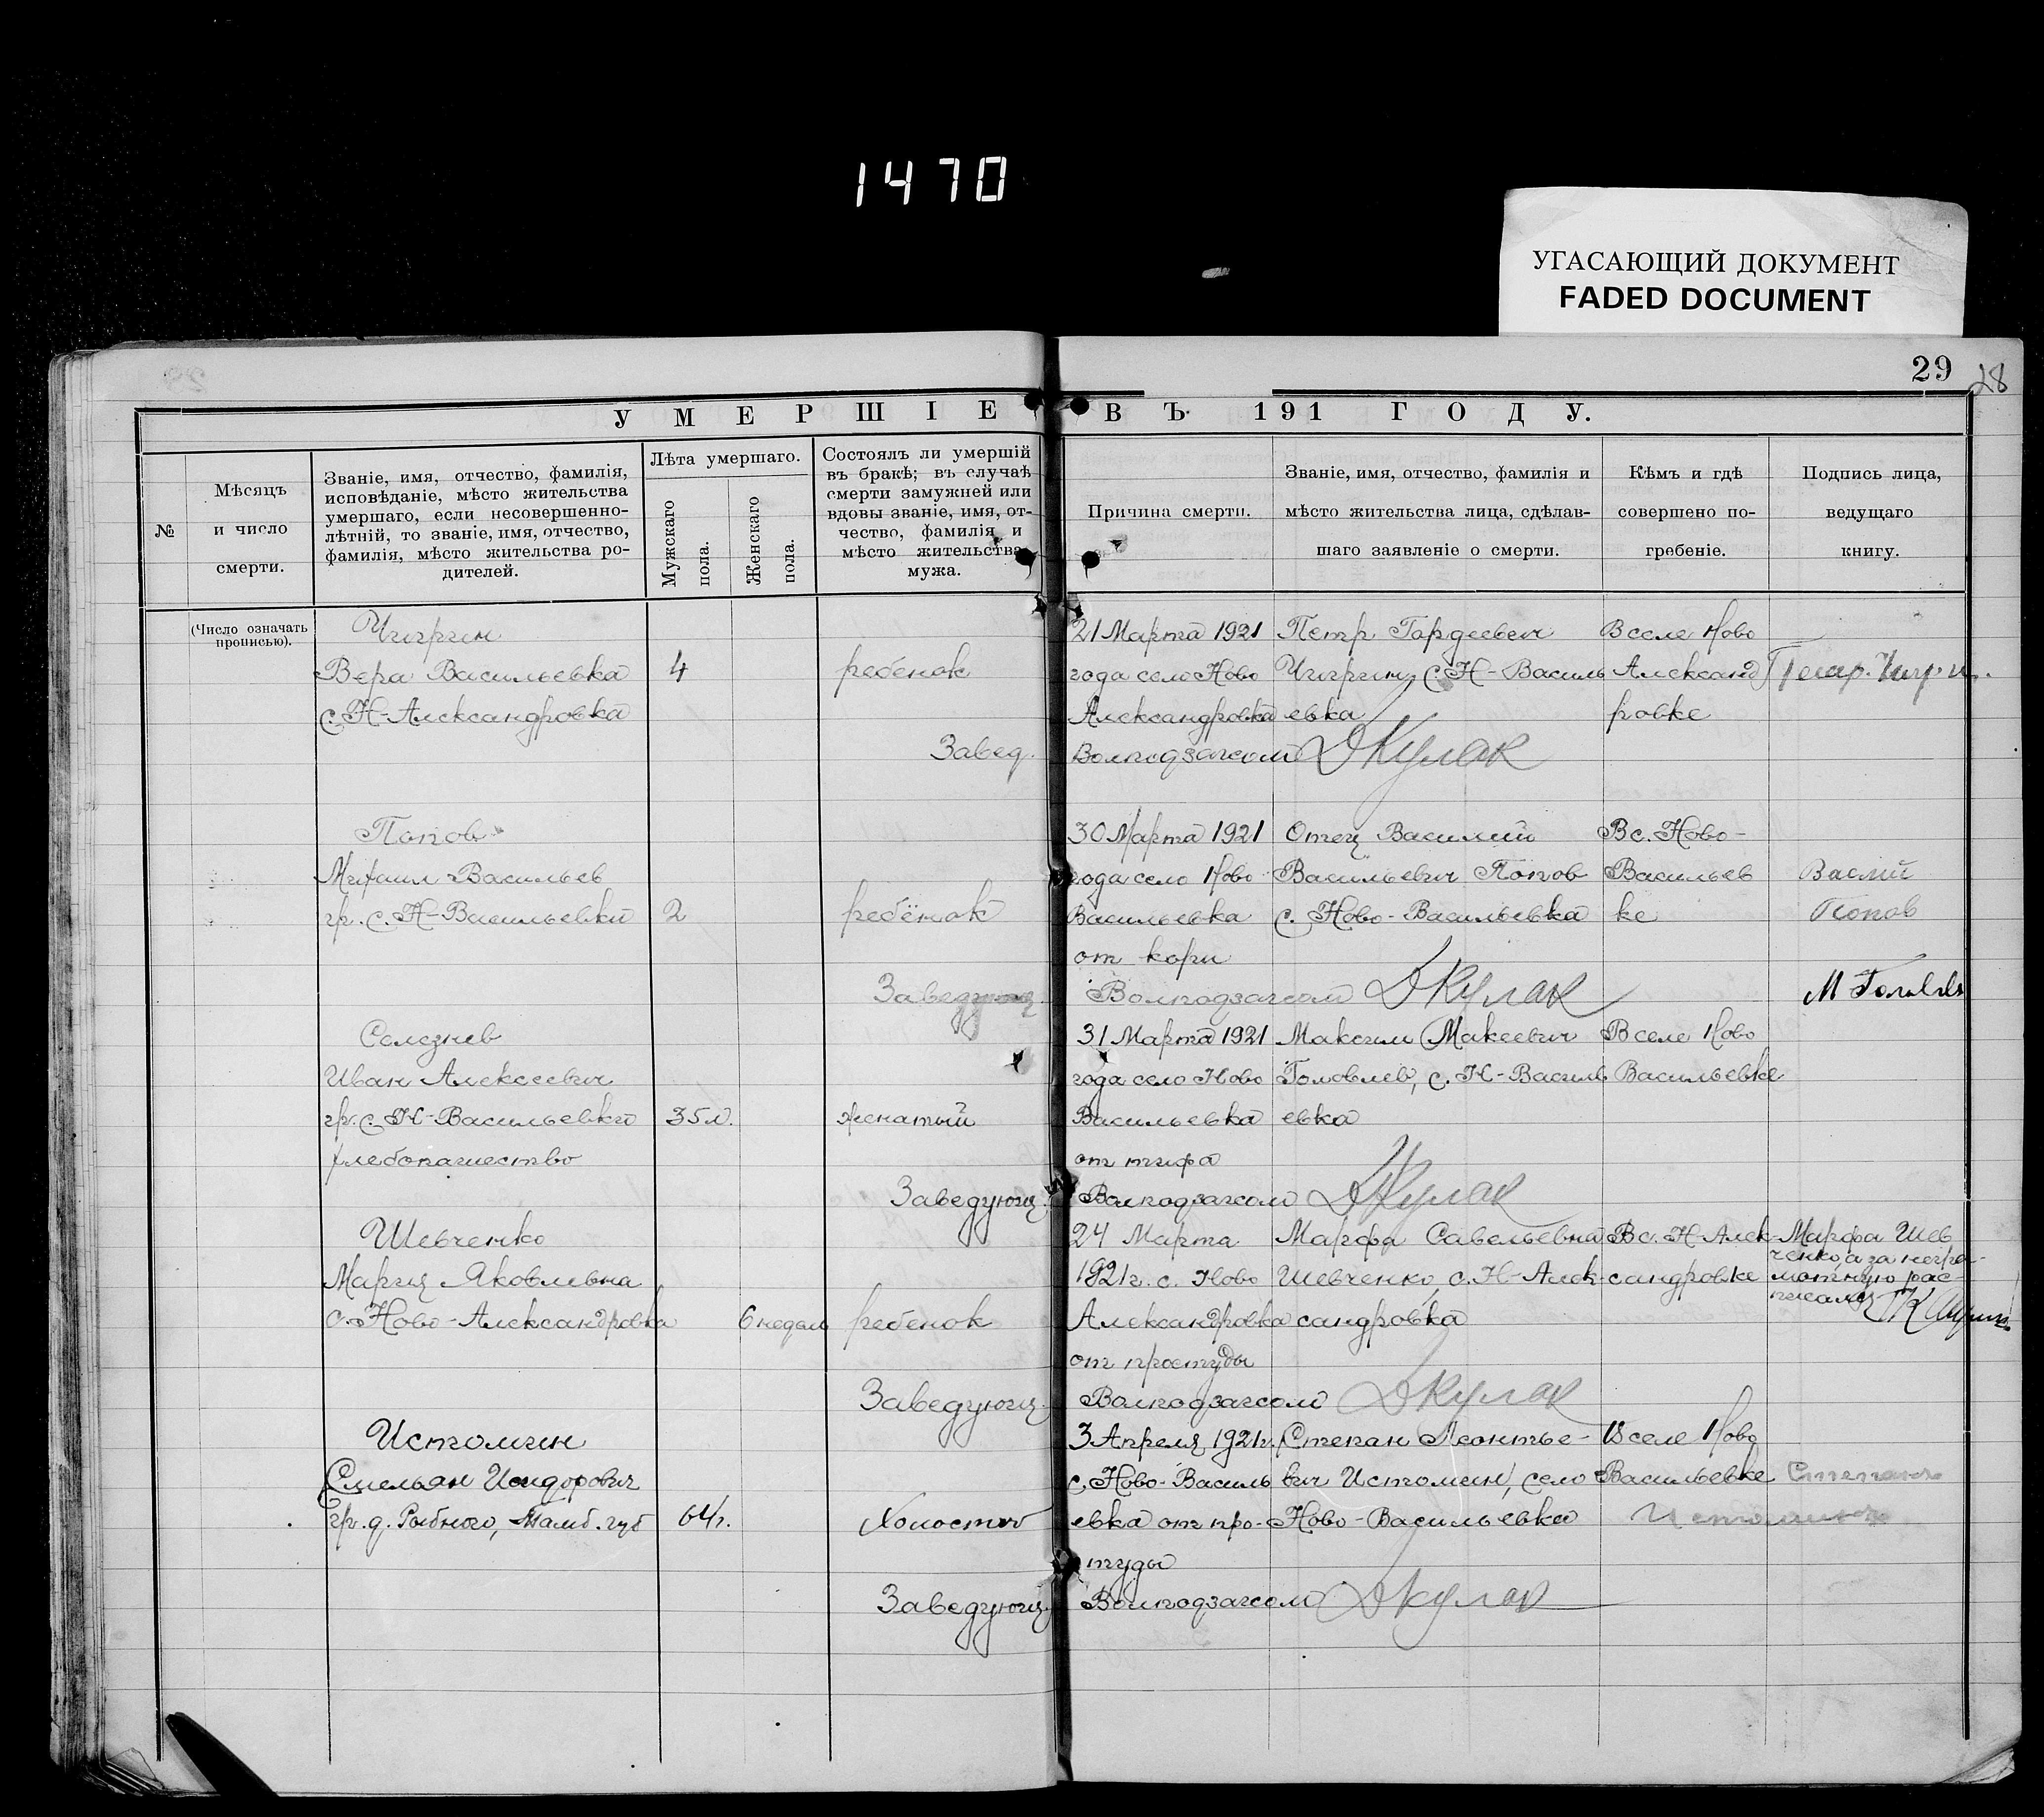 1470
УГАСАЮЩИЙ ДОКУМЕНТ
FADED DOCUMENT
29 28
УМЕРШІЕ ВЪ 191 ГОДУ.
№
Мѣсяцъ
и число
смерти.
Званіе, имя, отчество, фамилія,
исповѣданіе, мѣсто жительства
умершаго, если несовершенно-
лѣтній, то званіе, имя, отчество,
фамилія, мѣсто жительства ро-
дителей.
Лѣта умершаго.
Мужскаго
пола.
Женскаго
пола.
Состоялъ ли умершій
въ бракѣ; въ случаѣ
смерти замужней или
вдовы званіе, имя, от-
чество, фамилія и
мѣсто жительства
мужа.
Причина смерти.
Званіе, имя, отчество, фамилія и
мѣсто жительства лица, сдѣлав-
шаго заявленіе о смерти.
Кѣмъ и гдѣ
совершено по-
гребеніе.
Подпись лица,
ведущаго
книгу.
(Число означать
прописью).
Чигрин 21 Марта 1921 Петр Гордеевич В селе Ново
Вера Васильевна 4 ребенок года село Ново Чигрин, С. Н-Василь Александ
С. Н-Александровка Александровка евка ровке
Завед. Волподзагсом ДКулак
Попов 30 Марта 1921 Отец Василий В с. Ново-
Михаил Васильев года село Ново Васильевич Попов Васильев Васлий
гр. с. Н-Васильевки 2 ребёнок Васильевка с. Ново-Васильевка ке Попов
от кори
Заведующ. Волподзагсом ДКулак
Селезнев 31 Марта 1921 Максим Макеевич В селе Ново
Иван Алексеевич года село Ново Головлев, с. Н-Василь Васильевке
гр. с. Н-Васильевка 35 л. женатый Васильевка евка
хлебопашество от тифа
Заведующ. Волподзагсом ДКулак
Шевченко 24 Марта Марфа Савельевна В с. Н-Алек- Марфа Шев
ченко, а за негра-
Мария Яковлевна 1921 г. с. Ново Шевченко, с. Н-Алек- сандровке мотную рас-
с. Ново-Александровка 6 недель ребенок Александровка сандровка
от простуды
Заведующ. Волподзагсом ДКулак
Истомин 3 Апреля 1921 г. Степан Леонтье- В селе Ново
Емельян Исидорович с. Ново-Василь вич Истомин, село Васильевке Степан
гр. д. Рыбного, Тамб. губ 64 г. Холостой евка от про- Ново-Васильевка Истомин
туды
Заведующ. Волподзагсом ДКулак